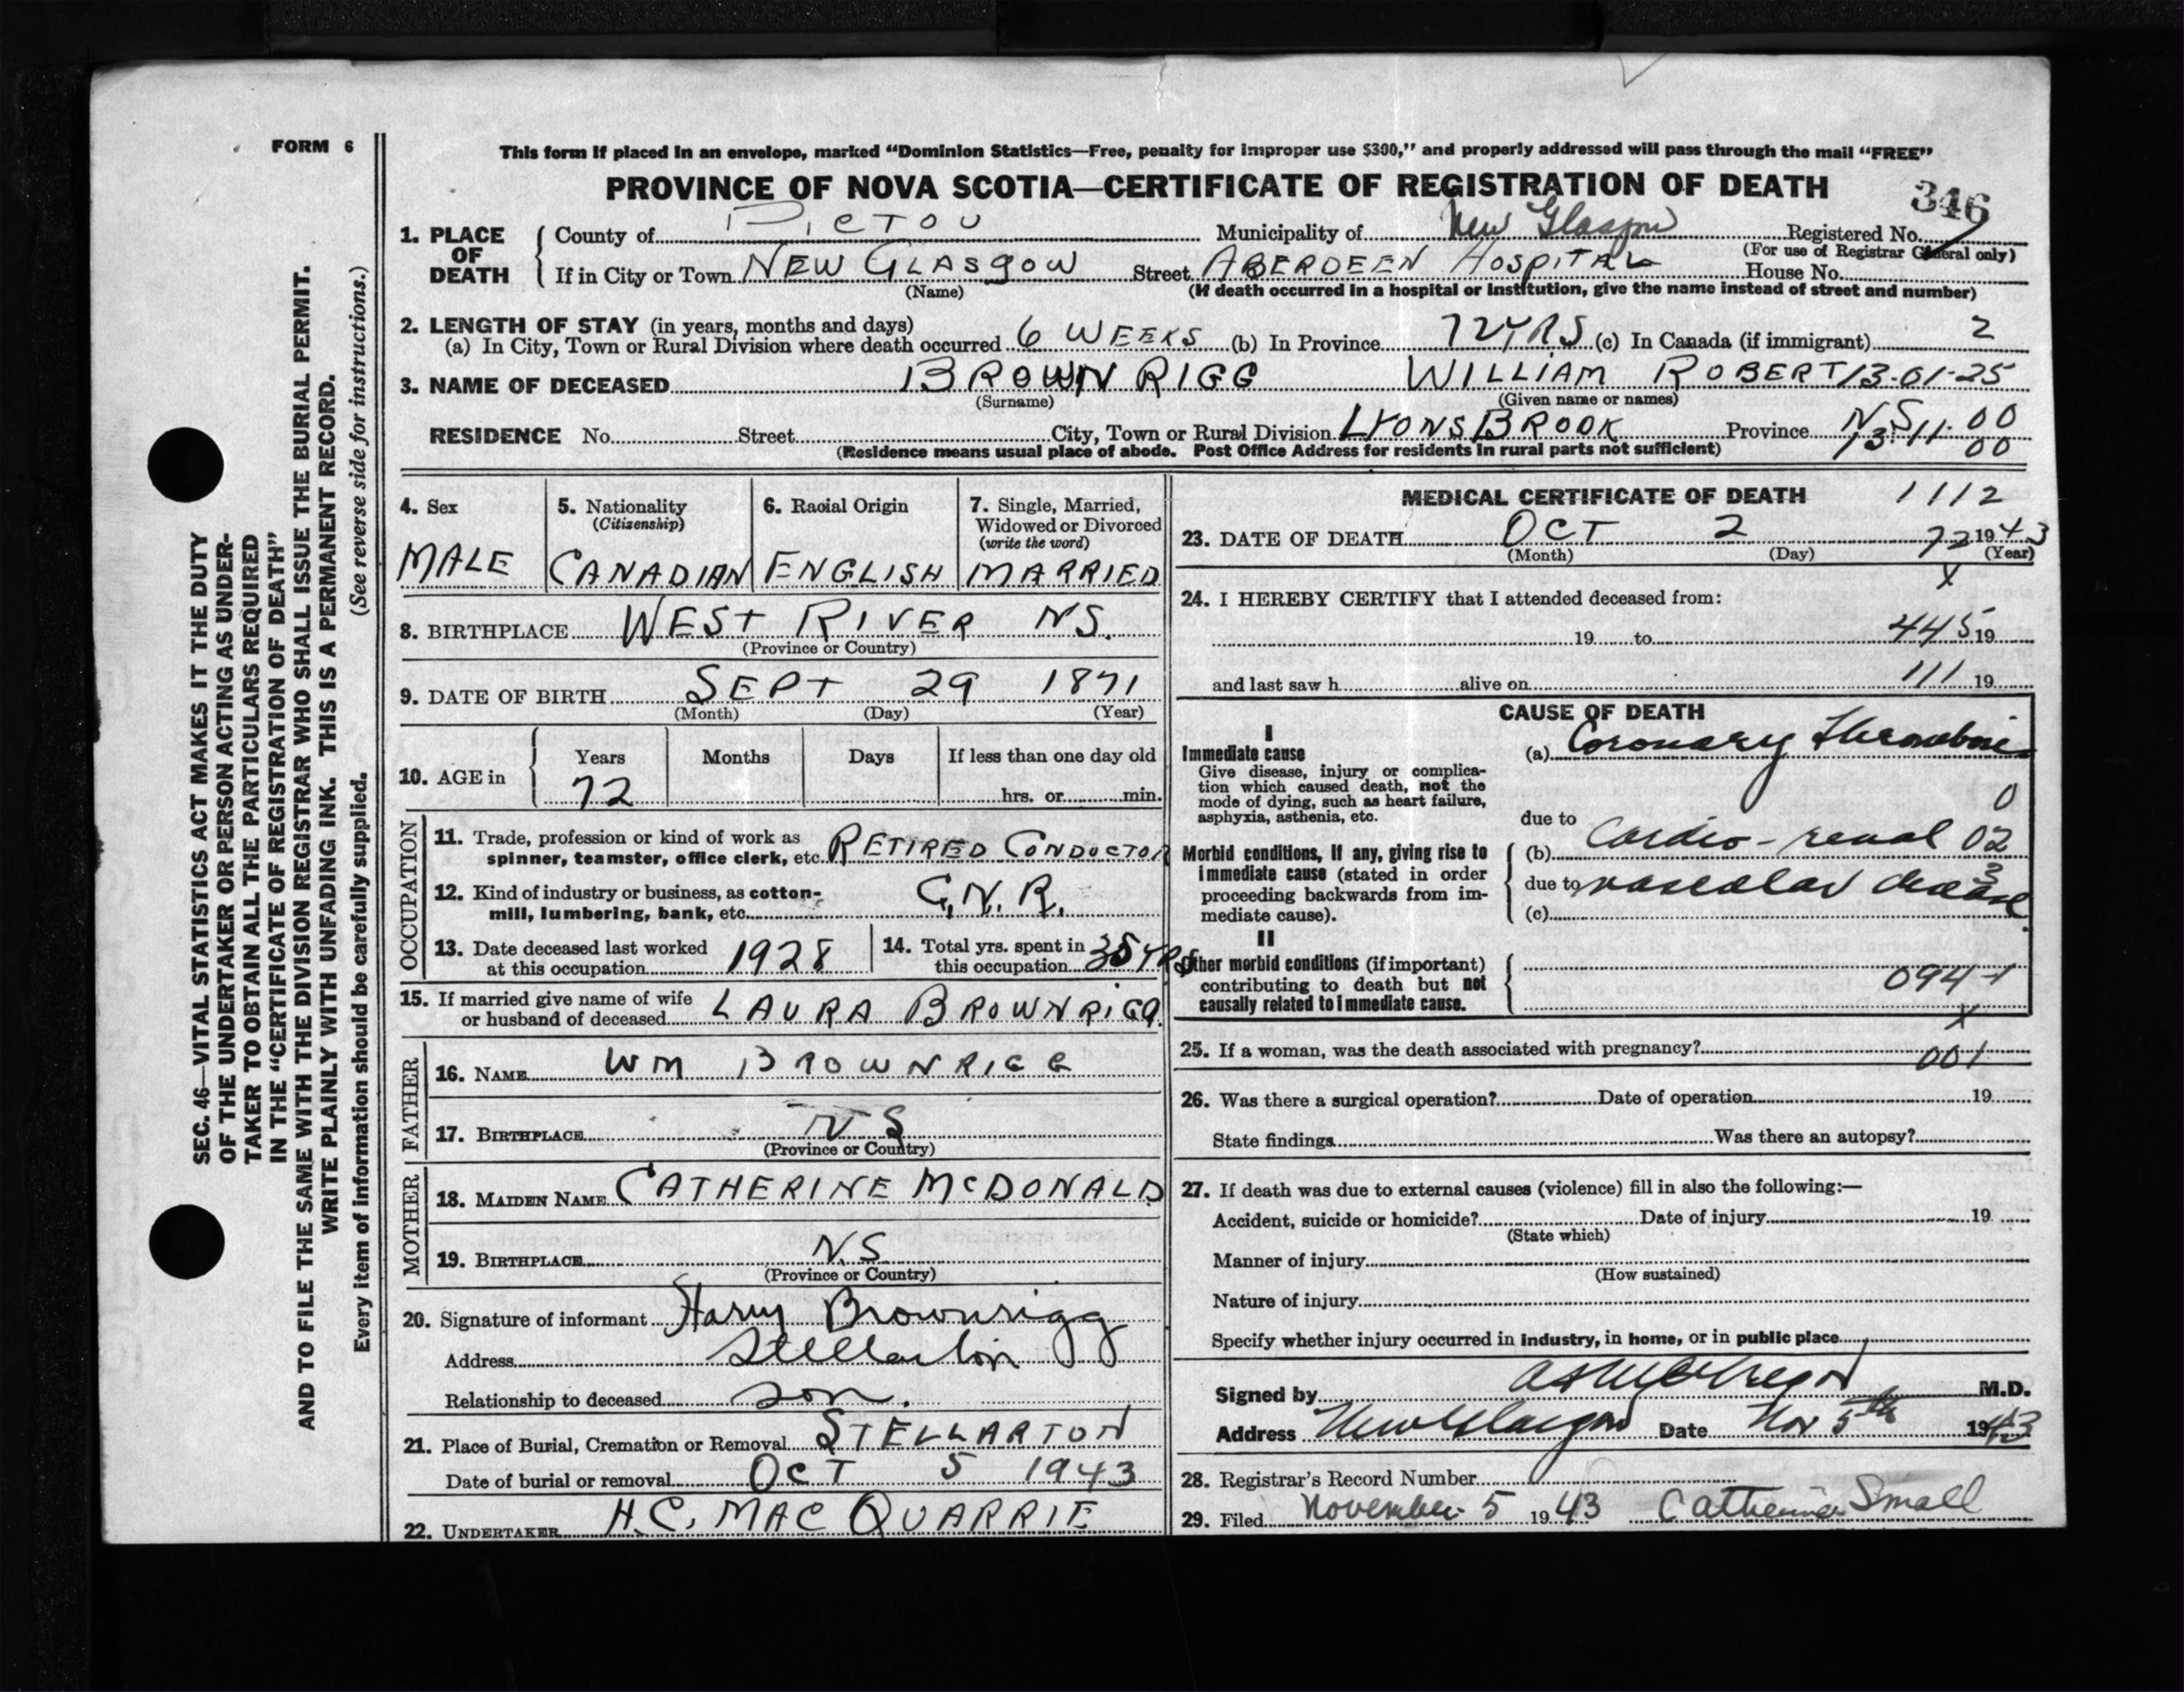 FORM 6
This form if placed in an envelope, marked "Dominion Statistics—Free, penalty for improper use $300," and properly addressed will pass through the mail "FREE"
PROVINCE OF NOVA SCOTIA—CERTIFICATE OF REGISTRATION OF DEATH
346
1. PLACE OF DEATH
County of PICTOU Municipality of New Glasgow Registered No.
(For use of Registrar General only)
If in City or Town NEW GLASGOW Street ABERDEEN HOSPITAL House No.
(Name) (If death occurred in a hospital or institution, give the name instead of street and number)
2. LENGTH OF STAY (in years, months and days)
(a) In City, Town or Rural Division where death occurred 6 WEEKS (b) In Province 72 YRS (c) In Canada (if immigrant) 2
3. NAME OF DECEASED BROWNRIGG WILLIAM ROBERT 13-01-25
(Surname) (Given name or names)
RESIDENCE No. Street City, Town or Rural Division LYONS BROOK Province N.S.
13.11.00
00
(Residence means usual place of abode. Post Office Address for residents in rural parts not sufficient)
4. Sex
MALE
5. Nationality
(Citizenship)
CANADIAN
6. Racial Origin
ENGLISH
7. Single, Married,
Widowed or Divorced
(write the word)
MARRIED
8. BIRTHPLACE WEST RIVER NS.
(Province or Country)
9. DATE OF BIRTH SEPT 29 1871
(Month) (Day) (Year)
10. AGE in
Years Months Days If less than one day old
72 hrs. or min.
OCCUPATION
11. Trade, profession or kind of work as
spinner, teamster, office clerk, etc. RETIRED CONDUCTOR
12. Kind of industry or business, as cotton-
mill, lumbering, bank, etc. C.N.R.
13. Date deceased last worked
at this occupation 1928
14. Total yrs. spent in
this occupation 35 YRS
15. If married give name of wife
or husband of deceased LAURA BROWNRIGG.
FATHER
16. NAME WM BROWNRIGG
17. BIRTHPLACE N S
(Province or Country)
MOTHER
18. MAIDEN NAME CATHERINE McDONALD
19. BIRTHPLACE N.S.
(Province or Country)
20. Signature of informant Harry Brownrigg
Address Stellarton
Relationship to deceased son.
21. Place of Burial, Cremation or Removal STELLARTON
Date of burial or removal OCT 5 1943
22. UNDERTAKER H.C. MACQUARRIE
MEDICAL CERTIFICATE OF DEATH 1112
23. DATE OF DEATH OCT 2 72 1943
(Month) (Day) (Year)
X
24. I HEREBY CERTIFY that I attended deceased from:
19 to 445 19
and last saw h alive on 111 19
CAUSE OF DEATH
I
Immediate cause
Give disease, injury or complica-
tion which caused death, not the
mode of dying, such as heart failure,
asphyxia, asthenia, etc.
(a) Coronary Thrombosis
0
due to
Morbid conditions, if any, giving rise to
immediate cause (stated in order
proceeding backwards from im-
mediate cause).
(b) Cardio-renal 02
3
due to vascular disease.
(c)
II
Other morbid conditions (if important)
contributing to death but not
causally related to immediate cause.
094-1
X
25. If a woman, was the death associated with pregnancy? 001
26. Was there a surgical operation? Date of operation 19
State findings Was there an autopsy?
27. If death was due to external causes (violence) fill in also the following:—
Accident, suicide or homicide? Date of injury 19
(State which)
Manner of injury
(How sustained)
Nature of injury
Specify whether injury occurred in industry, in home, or in public place
Signed by M.D.
Address New Glasgow Date Nov 5th 1943
28. Registrar's Record Number
29. Filed November 5 1943 Catherine Small
SEC. 46—VITAL STATISTICS ACT MAKES IT THE DUTY
OF THE UNDERTAKER OR PERSON ACTING AS UNDER-
TAKER TO OBTAIN ALL THE PARTICULARS REQUIRED
IN THE "CERTIFICATE OF REGISTRATION OF DEATH"
AND TO FILE THE SAME WITH THE DIVISION REGISTRAR WHO SHALL ISSUE THE BURIAL PERMIT.
WRITE PLAINLY WITH UNFADING INK. THIS IS A PERMANENT RECORD.
Every item of information should be carefully supplied. (See reverse side for instructions.)